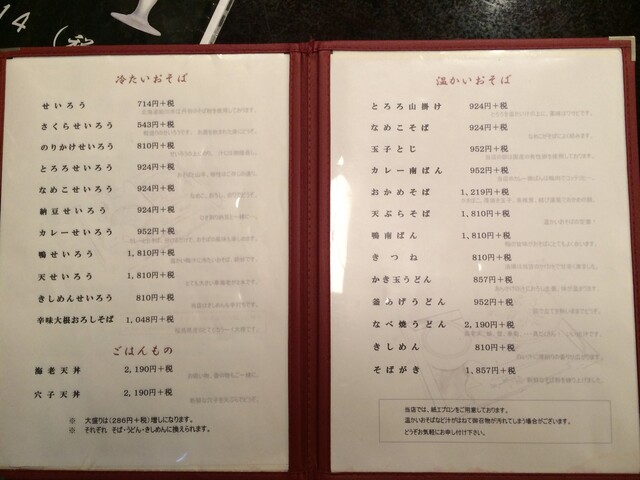 14
冷たいおそば
せいろう 714円+税
さくらせいろう 543円+税
のりかけせいろう 810円+税
とろろせいろう 924円+税
なめこせいろう 924円+税
納豆せいろう 924円+税
カレーせいろう 952円+税
鴨せいろう 1,810円+税
天せいろう 1,810円+税
きしめんせいろう 810円+税
辛味大根おろしそば 1,048円+税
ごはんもの
海老天丼 2,190円+税
穴子天丼 2,190円+税
※ 大盛りは(286円+税)増しになります。
※ それぞれ そば・うどん・きしめんに換えられます。
温かいおそば
とろろ山掛け 924円+税
なめこそば 924円+税
玉子とじ 952円+税
カレー南ばん 952円+税
おかめそば 1,219円+税
天ぷらそば 1,810円+税
鴨南ばん 1,810円+税
きつね 810円+税
かき玉うどん 857円+税
釜あげうどん 952円+税
なべ焼うどん 2,190円+税
きしめん 810円+税
そばがき 1,857円+税
当店では、紙エプロンをご用意しております。
温かいおそばなど汁がはねて御召物が汚れてしまう場合がございます。
どうぞお気軽にお申し付け下さい。